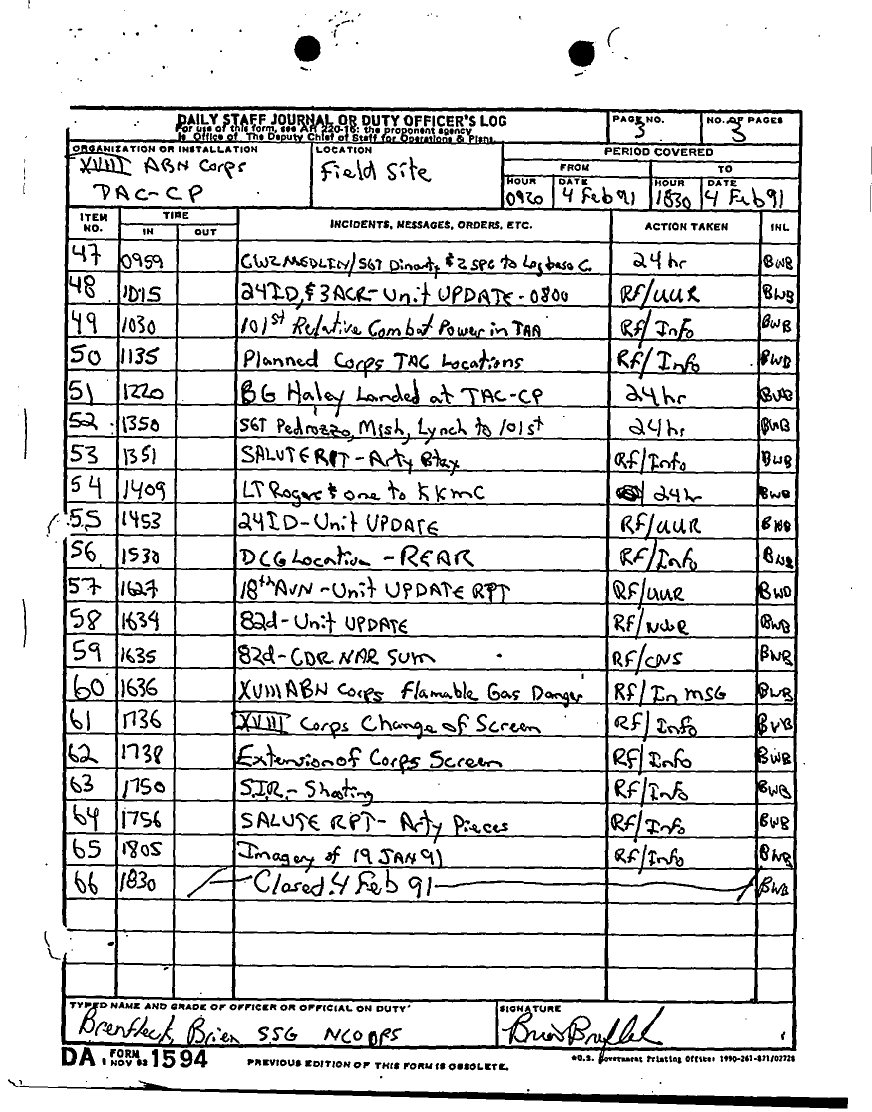 DAILY STAFF JOURNAL OR DUTY OFFICER'S LOG
For use of this form, see AR 220-15; the proponent agency
is Office of The Deputy Chief of Staff for Operations & Plans.
PAGE NO.
3
NO. OF PAGES
3
ORGANIZATION OR INSTALLATION
XVIII ABN Corps
DAC-CP
LOCATION
Field Site
PERIOD COVERED
FROM TO
HOUR DATE HOUR DATE
0920 4 Feb 91 1830 4 Feb 91
ITEM NO. TIME IN OUT INCIDENTS, MESSAGES, ORDERS, ETC. ACTION TAKEN INL
47 0959 CW2 MEDLIN/SGT & 2 SPC to Logbase C. 24 hr BWB
48 1015 24ID, & 3ACR-Unit UPDATE-0800 RF/UUR BWB
49 1030 101st Relative Combat Power in TAA RF/Info BWB
50 1135 Planned Corps TAC Locations RF/Info BWB
51 1220 BG Haley Landed at TAC-CP 24 hr BWB
52 1350 SGT Pedrozzo, Lynch to 101st 24 hr BWB
53 1351 SALUTE RPT-Arty RF/Info BWB
54 1409 LT Rogers & one to KKMC 24 hr BWB
55 1453 24ID-Unit UPDATE RF/UUR BWB
56 1530 DCG Location - REAR RF/Info BWB
57 1627 18th AVN-Unit UPDATE RPT RF/UUR BWB
58 1634 82d-Unit UPDATE RF/ BWB
59 1635 82d-CDR NAR SUM RF/CNS BWB
60 1636 XVIII ABN Corps Flamable Gas Danger RF/In MSG BWB
61 1736 XVIII Corps Change of Screen RF/Info BWB
62 1738 Extension of Corps Screen RF/Info BWB
63 1750 S.I.R.- Shooting RF/Info BWB
64 1756 SALUTE RPT- Arty Pieces RF/Info BWB
65 1805 Imagery of 19 JAN 91 RF/Info BWB
66 1830 Closed 4 Feb 91 BWB
TYPED NAME AND GRADE OF OFFICER OR OFFICIAL ON DUTY
Brenfleck, Brien SSG NCO OPS
SIGNATURE
DA FORM 1594
1 NOV 62
PREVIOUS EDITION OF THIS FORM IS OBSOLETE.
*U.S. Government Printing Office: 1990-261-871/02728